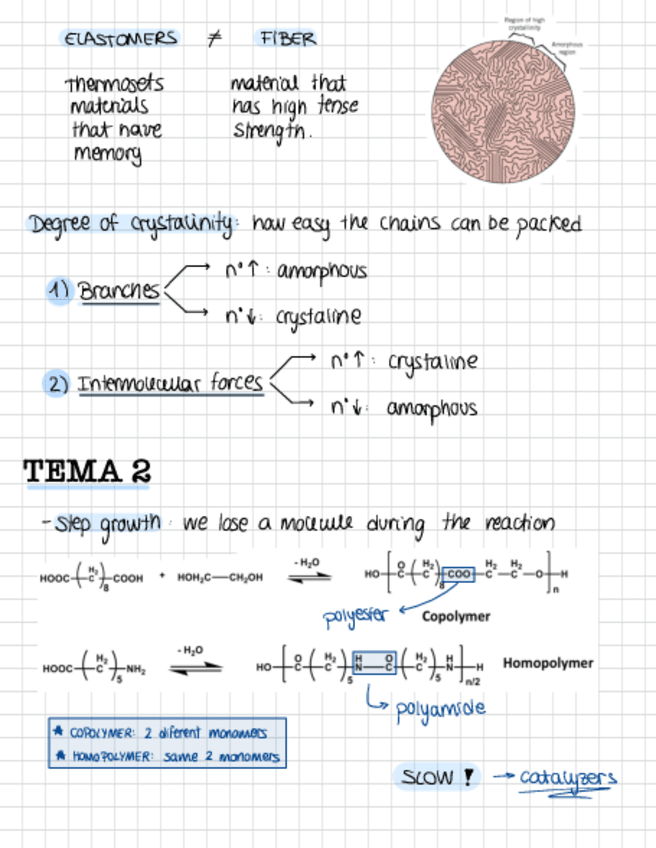 ELASTOMERS ≠ FIBER
Region of high
crystallinity
Amorphous
region
Thermosets
materials
that have
memory
material that
has high tense
strength.
Degree of crystalinity: how easy the chains can be packed
1) Branches
n° ↑ : amorphous
n° ↓ : crystaline
2) Intermolecular forces
n° ↑ : crystaline
n° ↓ : amorphous
TEMA 2
- Step growth : we lose a molecule during the reaction
HOOC-(C H2)8-COOH + HOH2C—CH2OH - H2O HO-[C O (C H2)8 COO C H2 C H2 O]n-H
polyester Copolymer
HOOC-(C H2)5-NH2 - H2O HO-[C O (C H2)5 N H C O (C H2)5 N H]n/2-H Homopolymer
polyamide
* COPOLYMER: 2 diferent monomers
* HOMOPOLYMER: same 2 monomers
SLOW ! → catalyzers